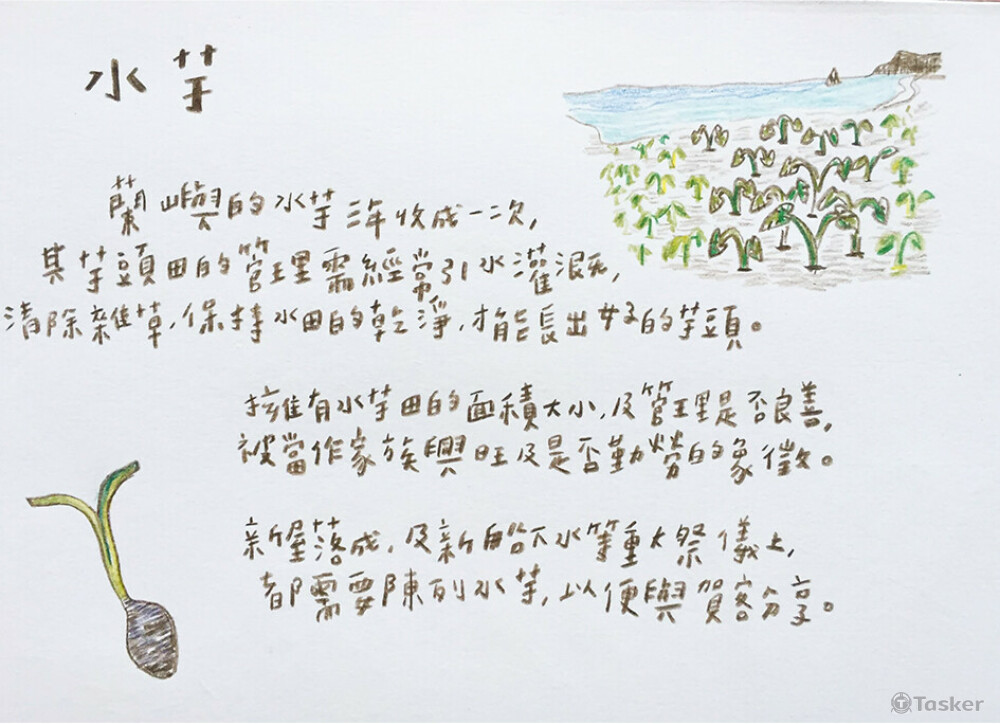 水芋
蘭嶼的水芋三年收成一次,
其芋頭田的管理需經常引水灌溉,
清除雜草,保持水田的乾淨,才能長出好的芋頭。
擁有水芋田的面積大小,及管理是否良善,
被當作家族興旺及是否勤勞的象徵。
新屋落成,及新船下水等重大祭儀上,
都需要陳列水芋,以便與賀客分享。
Tasker